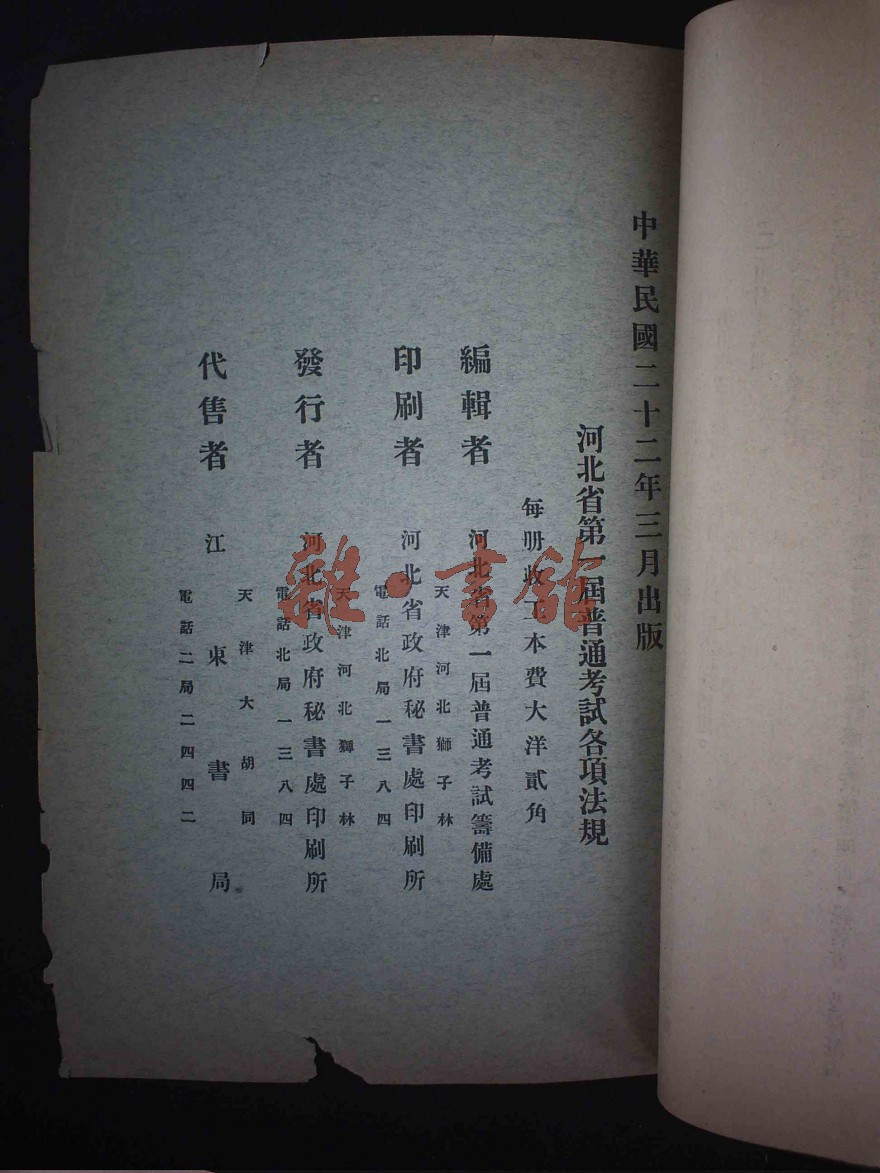 中華民國二十二年三月出版
河北省第一屆普通考試各項法規
每册收工本費大洋貳角
編輯者 河北省第一屆普通考試籌備處
天津河北獅子林
印刷者 河北省政府秘書處印刷所
電話北局一三八四
天津河北獅子林
發行者 河北省政府秘書處印刷所
電話北局一三八四
天津大胡同
代售者 江東書局
電話二局二四四二
雜·書館